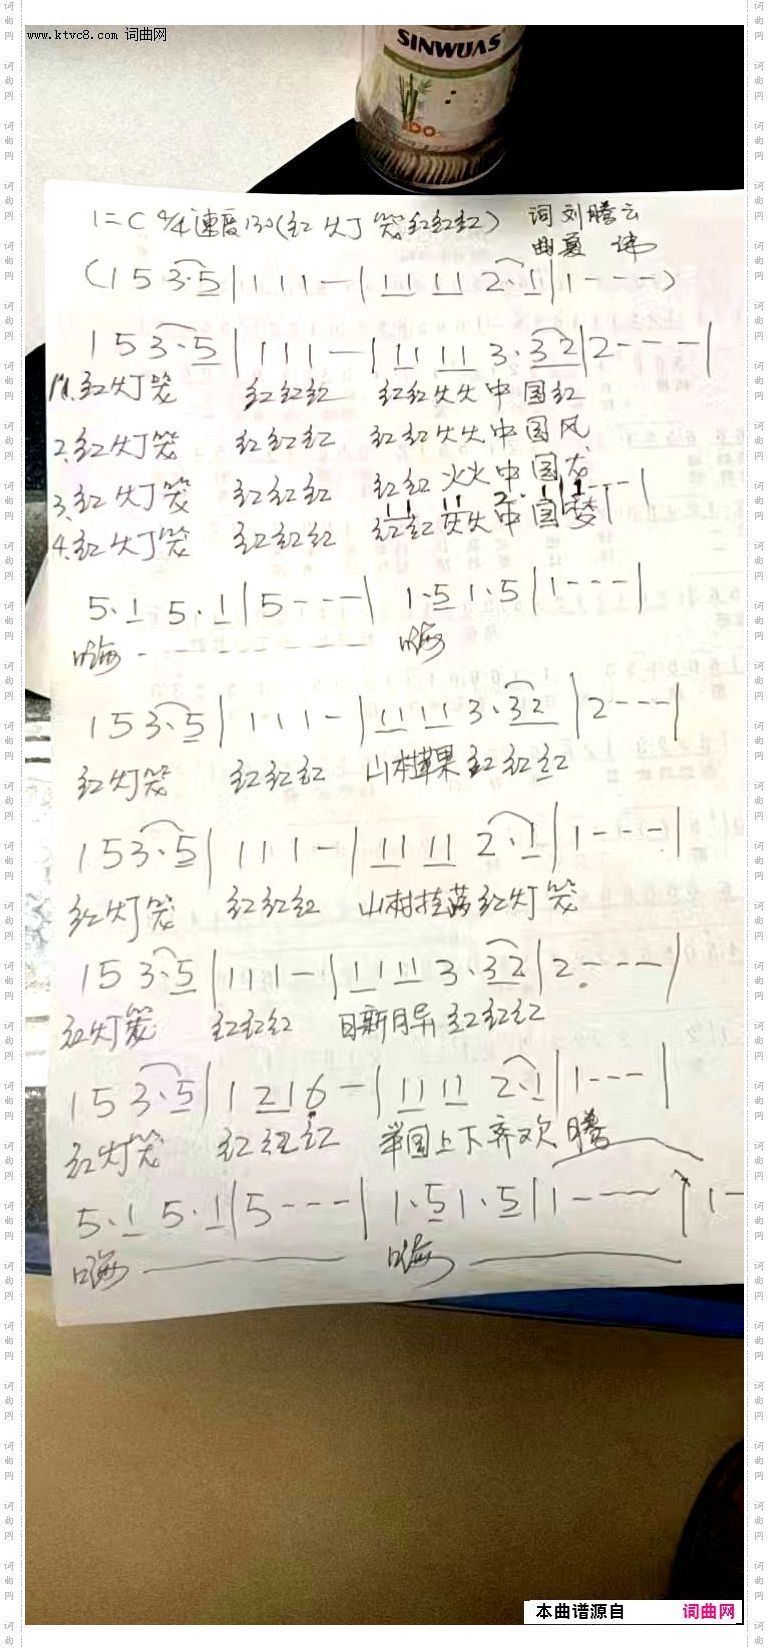 www.ktvc8.com 词曲网
SINWUAS
100
1=C 4/4 速度130(红灯笼红红红) 词 刘腾云
曲 夏 伟
(1 5 3·5|1 1 1 -|11 11 2·1|1---)
1 5 3·5|1 1 1 -|11 11 3·32|2---|
1.红灯笼 红红红 红红火火中国红
2.红灯笼 红红红 红红火火中国风
3.红灯笼 红红红 红红火火中国龙
11 11 2·1|1---|
4.红灯笼 红红红 红红火火中国梦
5·1 5·1|5---| 1·5 1·5|1---|
嗨 嗨
1 5 3·5|1 1 1 -|11 11 3·32|2---|
红灯笼 红红红 山村苹果红红红
1 5 3·5|1 1 1 -|11 11 2·1|1---|
红灯笼 红红红 山村挂满红灯笼
1 5 3·5|1 1 1 -|11 11 3·32|2---|
红灯笼 红红红 日新月异红红红
1 5 3·5|1 216 -|11 11 2·1|1---|
红灯笼 红红红 举国上下齐欢腾
5·1 5·1|5---| 1·5 1·5|1---|1-
嗨 嗨
本曲谱源自 词曲网